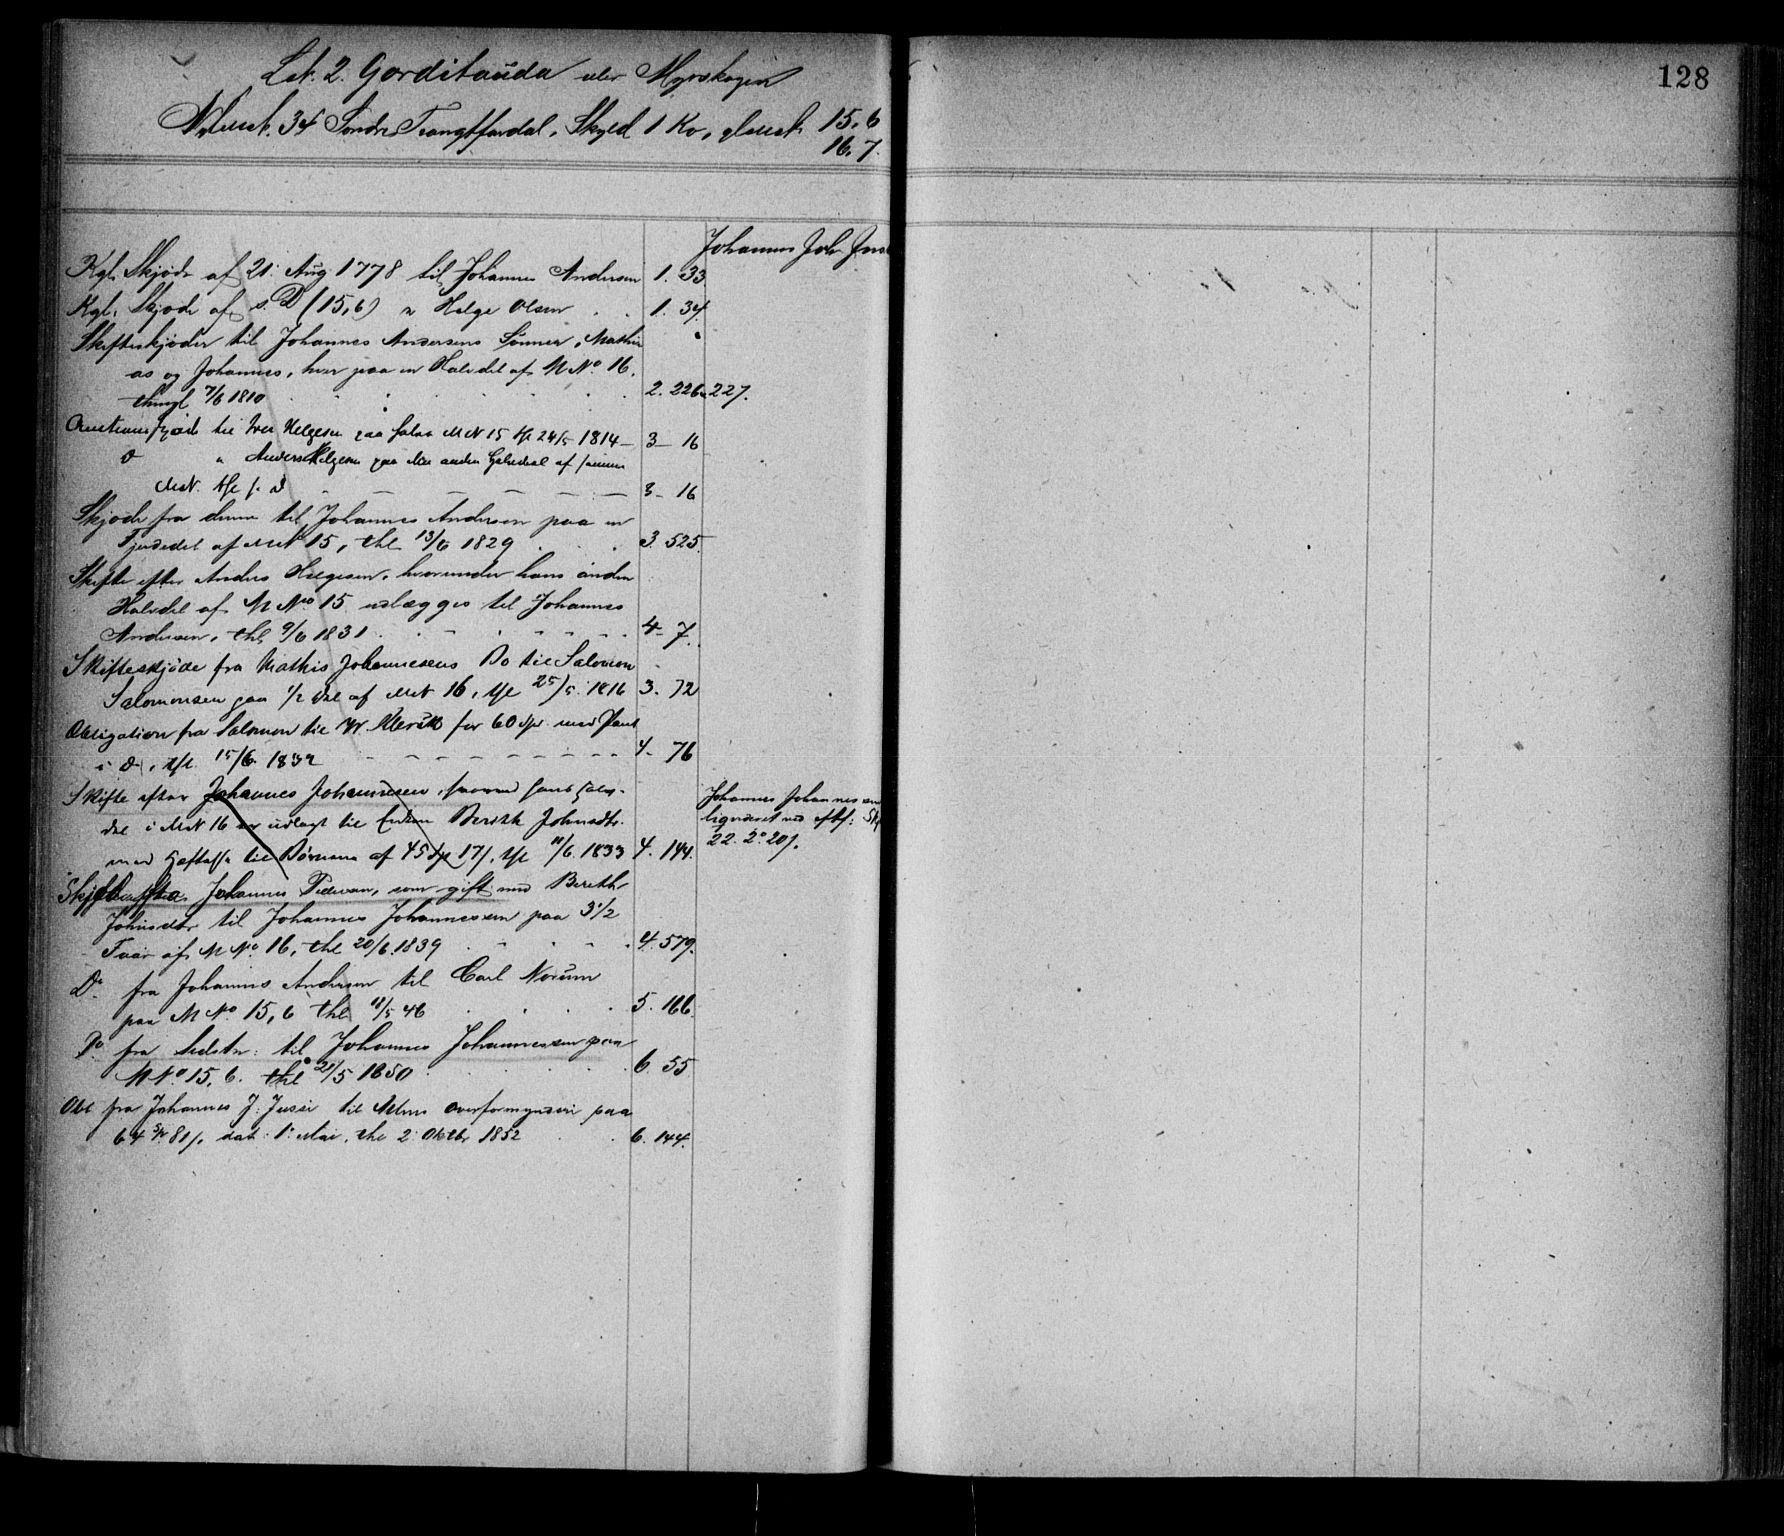 128
Lit. 2. Gorditauda eller Myrskogen
Matr. 34 Söndre Trangfjordal, Skyld 1 Ko, gl. Matr. 15,6
16,7.
Johannes Joh.
Kgl. Skjöde af 21. Aug 1778 til Johannes Andersen 1. 33.
Kgl. Skjöde af s. D (15,6) " Helge Olsen 1. 34.
Skifteskjöder til Johannes Andersens Sönner, Mathi
as og Johannes, hver paa en Halvdel af M No. 16.
thingl. 7/6 1810 2. 226 227.
Auctionsskjöde til Iver Helgesen paa halve MN 15 24/5 1814 3 - 16
D " Anders Helgesen paa den anden Halvdeel af samme
MN. s. D 3 - 16
Skjöde fra denne til Johannes Andersen paa en
Fjerdedel af MN 15, thl 13/6 1829 3. 525.
Skifte efter Anders Helgesen, hvorunder hans anden
Halvdel af M No 15 udlægges til Johannes
Andersen, thl 9/6 1831 4 - 7.
Skifteskjöde fra Mathis Johannesens Bo til Salomon
Salomonsen paa 1/2 Del af MN 16, 25/5 1816 3. 72
Obligation fra Salomon til W. Klerck for 60 Spd. med Pant
i D, 15/6 1832 4 - 76
Skifte efter Johannes Johannesen, hvorved hans Halv-
del i MN 16 er udlagt til Enken Bereth Johnsdtr.
med Heftelse til Börnene af 45 Sp 17 11/6 1833 4. 144.
Johannes Johannesen
22. 2. 20
Skjöde fra Johannes Pedersen, som gift med Bereth
Johnsdtr til Johannes Johannesen paa 3 1/2
af M No. 16, thl 20/6 1839 4. 579.
Do. fra Johannes Andersen til Carl Norum
paa M No. 15,6 thl 11/5 46 5. 166.
Do fra Sidstn: til Johannes Johannessen paa
M No 15, 6. thl 21/5 1850 6. 55
Obl fra Johannes J: til overformynderi paa
64 81, dat: 1. Mai, thl 2 Oktbr 1852 6. 144.